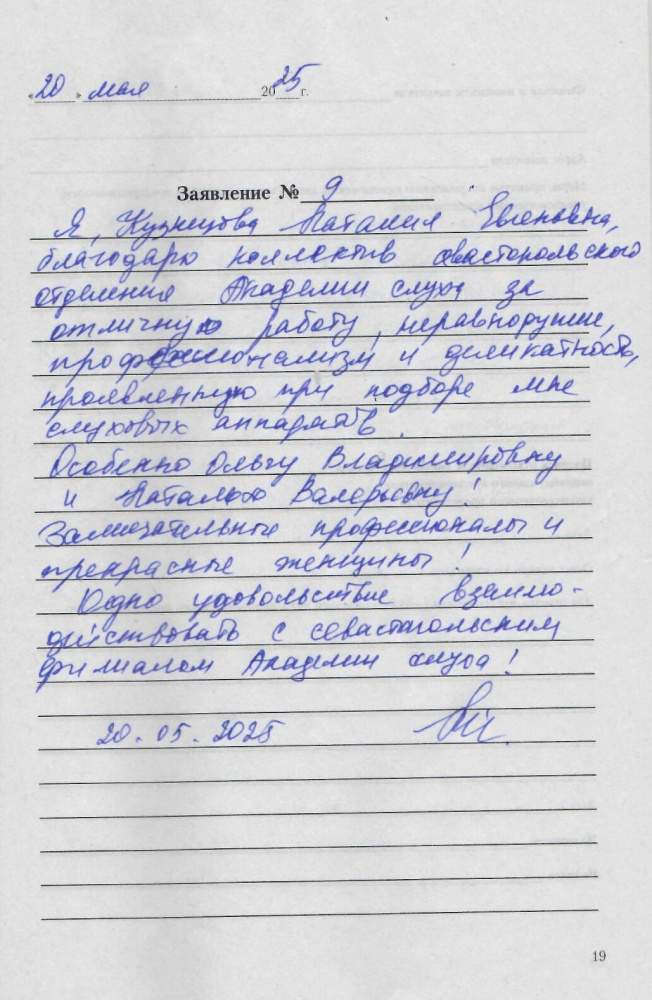 «20» мая 2025 г.
Заявление № 9
Я, Кузнецова Наталия Евгеновна,
благодарю коллектив севастопольского
отделения Академии слуха за
отличную работу, неравнодушие,
профессионализм и деликатность,
проявленную при подборе мне
слуховых аппаратов.
Особенно Ольгу Владимировну
и Наталью Валерьевну!
Замечательные профессионалы и
прекрасные женщины!
Одно удовольствие взаимо-
действовать с севастопольским
филиалом Академии слуха!
20.05.2025
19